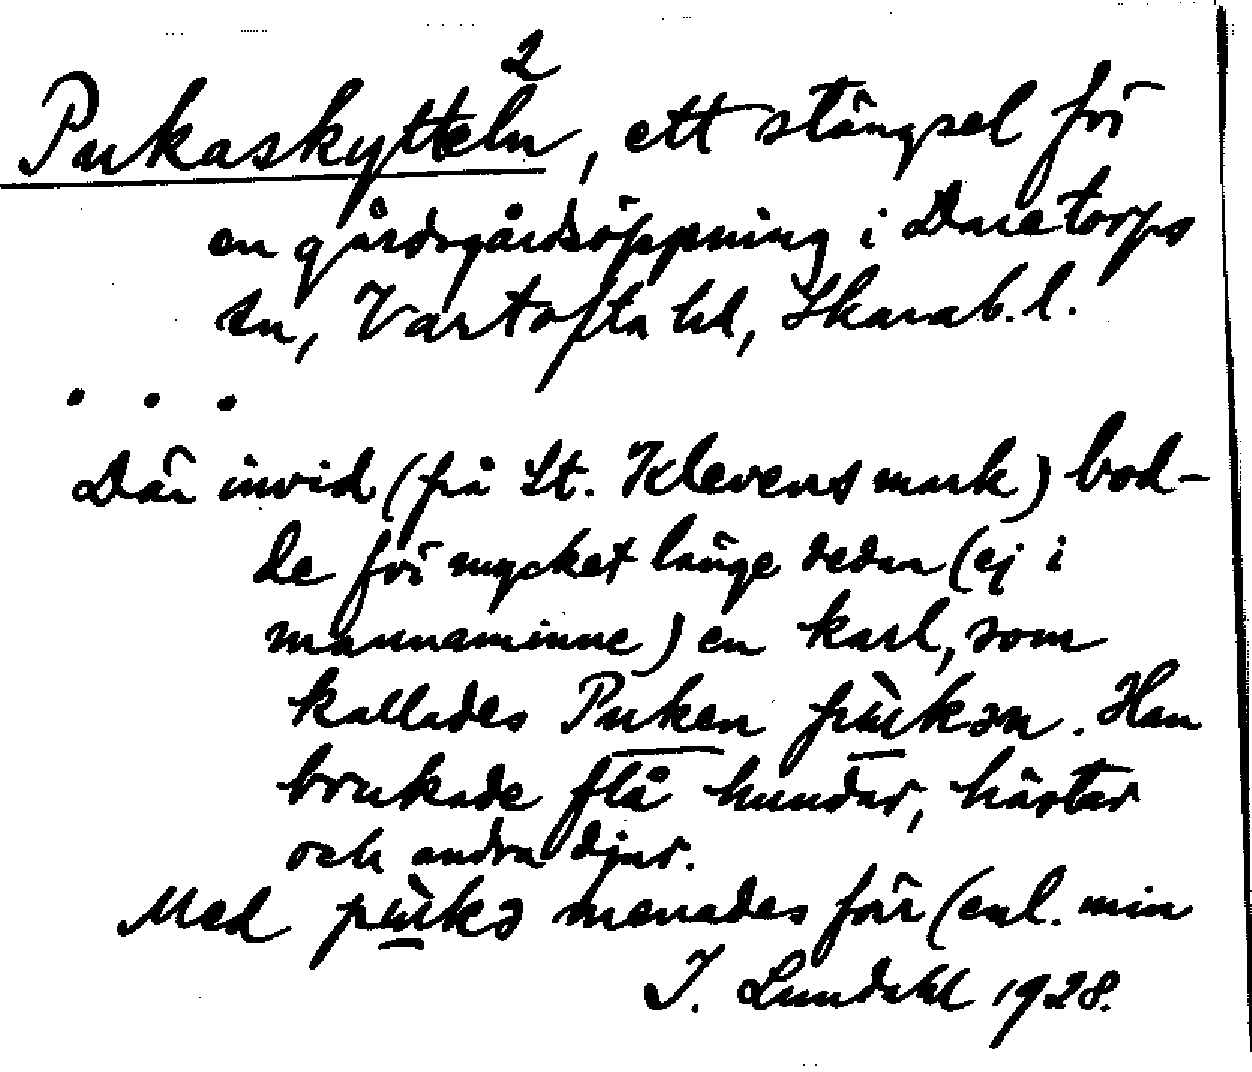 2
Pukaskytteln, ett stängsel för
en gärdsgårdsöppning i Daretorps
sn, Vartofta hd, Skarab. l.
. . .
Där invid (på St. Klevens mark) bod-
de för mycket länge sedan (ej i
mannaminne) en karl, som
kallades Puken pùkən. Han
brukade flå hundar, hästar
och andra djur.
Med pùkə menades förr (enl. min
I. Lundahl 1928.